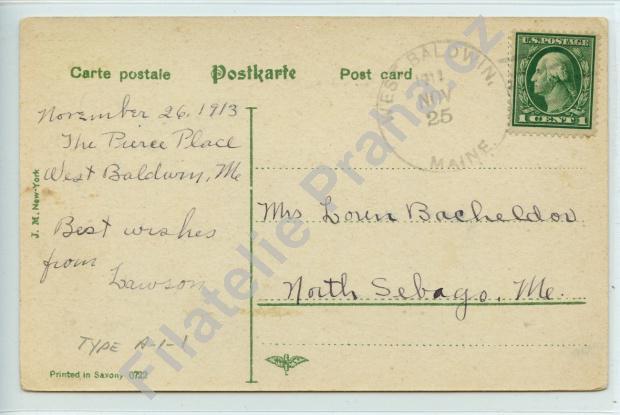 Carte postale Postkarte Post card
WEST BALDWIN,
NOV
25
MAINE.
U.S. POSTAGE
1 CENT 1
November 26, 1913
The Pierce Place
West Baldwin, Me
Best wishes
from
Lawson
TYPE A-1-1
J. M. New-York
Printed in Saxony 0722
Mrs Loren Bacheldor
North Sebago, Me.
Filatelie Praha.cz